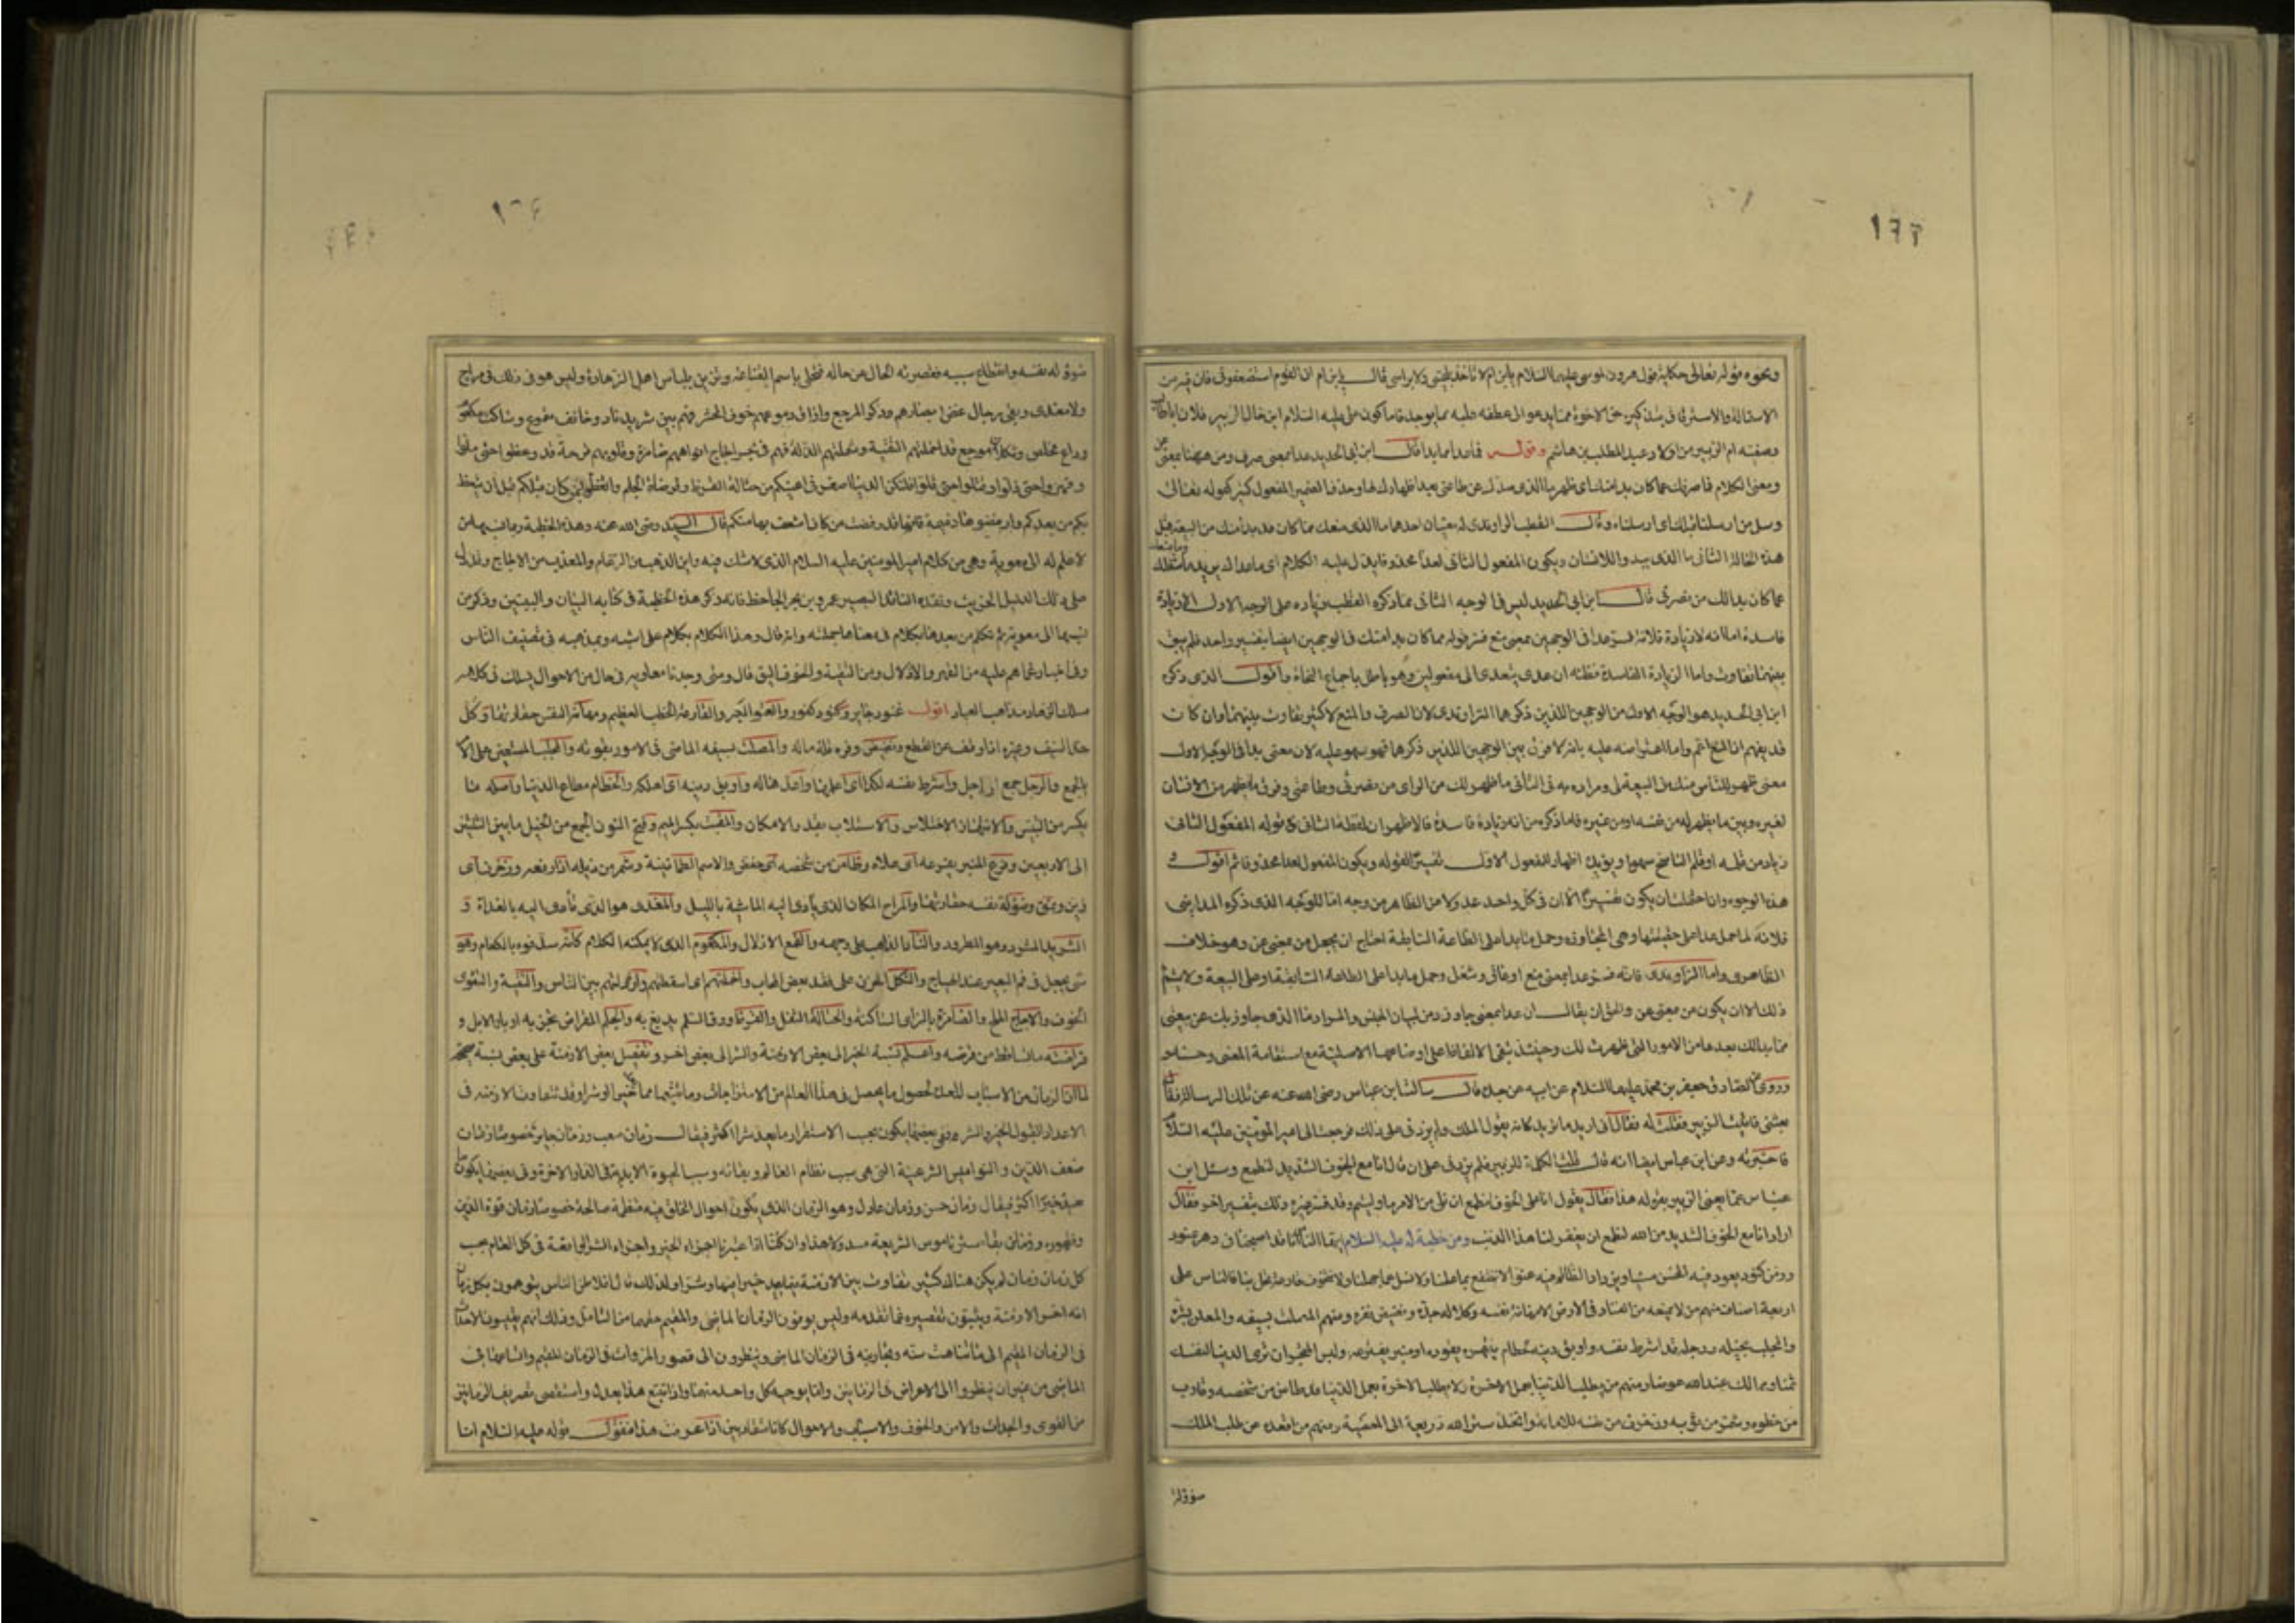 ١٦٣
ونحوه قوله تعالى حكاية قول هرون لموسى عليهما السلام يابن ام لا تاخذ بلحيتى ولا براسى قال يابن ام ان القوم استضعفونى فان فيه من
الاستمالة والاسترقاق بتذكير حق الاخوة ما يدعو الى عطفه عليه ما يوجد فاما كون على عليه السلام ابن خال الزبير فلان اباطالب
وصفيه ام الزبير من اولاد عبد المطلب بن هاشم وقوله فما عدا مما بدا قال ابن ابى الحديد عدا بمعنى صرف ومن ههنا بمعنى عن
ومعنى الكلام فما صرفك عما كان بدا منك اى ظهر ما الذى صدك عن طاعتى بعد اظهارك لها وحذف الضمير المفعول كثير كقوله تعالى
وسل من ارسلنا قبلك اى ارسلناه وقال القطب الراوندى له معنيان احدهما ما الذى منعك مما كان قد بدا منك من البيعة قبل
هذه الحالة الثانى ما الذى بدا لك الانسان ويكون المفعول الثانى لعدا محذوفا يدل عليه الكلام اى ما عداك يريد ما شغلك وما منعك
عما كان بدا لك من نصرتى قال ابن ابى الحديد ليس فى الوجه الثانى مما ذكره القطب زيادة على الوجه الاول الا زيادة
فاسدة اما انه لا زيادة فلانه فسر عدا فى الوجهين بمعنى منع فسر قوله مما كان بدا منك فى الوجهين ايضا بتفسير واحد فلم يبق
بينهما تفاوت واما الزيادة الفاسدة فظنه ان عدى يتعدى الى مفعولين وهو باطل باجماع النحاة واقول الذى ذكره
ابن ابى الحديد هو الوجه الاول من الوجهين اللذين ذكرهما الراوندى لان الصرف والمنع لا كثير تفاوت بينهما وان كان
قد يفهم ان المنع اعم واما اعتراضه عليه بانه لا فرق بين الوجهين اللذين ذكرهما فهو سهو عليه لان معنى بدا فى الوجه الاول
معنى ظهر للناس منك من البيعة لى ومراده به فى الثانى ما ظهر لك من الراى من نصرتى وطاعتى وفرق ما يظهر من الانسان
لغيره وبين ما يظهر له من نفسه او من غيره فاما ما ذكره من انه زيادة فاسدة فالاظهر ان لفظة الثانى فى قوله المفعول الثانى
زياد من قلمه او قلم الناسخ سهوا ويؤيده اظهار المفعول الاول تفسيرا لقوله ويكون المفعول لعدا محذوفا ثم اقول و
هذه الوجوه وان احتملت ان يكون تفسيرا الا ان فى كل واحد عدولا من الظاهر من وجه اما الوجه الذى ذكره المداينى
فلانه لما حمل عدا على حقيقتها وهى المجاوزة وحمل ما بدا على الطاعة السابقة احتاج ان يجعل من بمعنى عن وهو خلاف
الظاهرى واما الراوندى فانه فسر عدا بمعنى منع او عاق وشغل وحمل ما بدا على الطاعة السابقة او على البيعة ولا يتم
ذلك الا ان يكون من بمعنى عن والحق ان يقال ان عدا بمعنى جاوز ومن لبيان الجنس والمراد ما الذى جاوز بك عن بيعتى
مما بدا لك بعدها من الامور التى ظهرت لك وحينئذ تبقى الالفاظ على اوضاعها الاصلية مع استقامة المعنى وحسنه
وروى عن الصادق جعفر بن محمد عليهما السلام عن ابيه عن جده قال سالت ابن عباس رضى الله عنه عن تلك الرسالة فقال
بعثنى فاتيت الزبير فقلت له فقال انى اريد ما يريد كانه يقول الملك ولم يزدنى على ذلك فرجعت الى امير المؤمنين عليه السلام
فاخبرته وعن ابن عباس ايضا انه قال قلت الكلمة للزبير فلم يزدنى على ان قال انا مع الخوف الشديد لنطمع وسئل ابن
عباس عما يعنى الزبير بقوله هذا فقال يقول انا على الخوف لنطمع ان نلى من الامر ما وليتم وقد فسره غيره وذلك بتفسير اخر فقال
اراد انا مع الخوف الشديد من الله لنطمع ان يغفر لنا هذا الذنب ومن خطبة له عليه السلام ايها الناس انا قد اصبحنا فى دهر عنود
وزمن كنود يعد فيه المحسن مسيئا ويزداد الظالم فيه عتوا لا ننتفع بما علمنا ولا نسل عما جهلنا ولا نتخوف قارعة حتى تحل بنا فالناس على
اربعة اصناف منهم من لا يمنعه من الفساد فى الارض الا مهانة نفسه وكلالة حده ونضيض وفره ومنهم المصلت بسيفه والمعلن بشره
والمجلب بخيله ورجله قد اشرط نفسه واوبق دينه لحطام ينتهزه او مقنب يقوده او منبر يفرعه ولبئس المتجر ان ترى الدنيا لنفسك
ثمنا ومما لك عند الله عوضا ومنهم من يطلب الدنيا بعمل الاخرة ولا يطلب الاخرة بعمل الدنيا قد طامن من شخصه وقارب
من خطوه وشمر من ثوبه وزخرف من نفسه للامانة واتخذ ستر الله ذريعة الى المعصية ومنهم من اقعده عن طلب الملك
ضؤولة
١٦٤
ضؤولة نفسه وانقطاع سببه فقصرته الحال عن حاله فتحلى باسم القناعة وتزين بلباس اهل الزهادة وليس هو فى ذلك فى مراح
ولا مغدى وبقى رجال غض ابصارهم وذكر المرجع واراق دموعهم خوف المحشر فهم بين شريد ناد وخائف مقموع وساكت مكعوم
وداع مخلص وثكلان موجع قد اخملتهم التقية وشملتهم الذلة فهم فى بحر اجاج افواههم ضامزة وقلوبهم قرحة قد وعظوا حتى ملوا
وقهروا حتى ذلوا وقتلوا حتى قلوا فلتكن الدنيا اصغر فى اعينكم من حثالة القرظ وقراضة الجلم واتعظوا بمن كان قبلكم قبل ان يتعظ
بكم من بعدكم وارفضوها ذميمة فانها قد رفضت من كان اشغف بها منكم قال السيد رضى الله عنه وهذه الخطبة ربما نسبها من
لا علم له الى معوية وهى من كلام امير المومنين عليه السلام الذى لا شك فيه واين الذهب من الرغام والعذب من الاجاج وقد دل
على ذلك الدليل الخريت ونقده الناقد البصير عمرو بن بحر الجاحظ فانه ذكر هذه الخطبة فى كتابه البيان والتبيين وذكر من
نسبها الى معوية ثم تكلم من بعدها بكلام فى معناها جملته وانه قال وهذا الكلام بكلام على اشبه وبمذهبه فى تصنيف الناس
وفى اخبارهم عما هم عليه من القهر والاذلال ومن التقية والخوف اليق قال ومتى وجدنا معاوية فى حال من الاحوال يسلك فى كلامه
مسلك الزهاد ومذاهب العباد اقول عنود جاير وكنود كفور والعتو الكبر والقارعة الخطب العظيم ومهانة النفس حقارتها وكل
حد السيف وغيره اذا وقف عن القطع ونضيض وفره قلة ماله والمصلت بسيفه الماضى فى الامور بقوته والمجلب المستعين على الامر
بالجمع والرجل جمع راجل واشرط نفسه لكذا اى اعلمها واعدها له واوبق دينه اى اهلكه والحطام متاع الدنيا واصله ما
يكسر من اليبس والانتهاز الاختلاس والاستلاب بقدر الامكان والمقنب بكسر الميم وفتح النون الجمع من الخيل ما بين الثلثين
الى الاربعين وفرع المنبر يفرعه اى علاه وطامن من شخصه اى خفض والاسم الطمانينة وشمر من ذيله اذا رفعه وزخرف اى
زين ونمق وضؤلة نفسه حقارتها والمراح المكان الذى ياوى اليه الماشية بالليل والمغدى هو الذى تاوى اليه بالغداة و
الشريد المشرد وهو المطرود والناد الذاهب على وجهه والقمع الاذلال والمكعوم الذى لا يمكنه الكلام كانه سد فوه بالكعام وهو
شى يجعل فى فم البعير عند الهياج والثكل الحزن على فقد بعض المحاب واخملتهم اى اسقطتهم وارذلتهم بين الناس والتقية والتقوى
الخوف والاجاج الملح والضامزة بالزاى الساكتة والحثالة الثفل والقرظ ورق السلم يدبغ به والجلم المقراض يجز به اوبار الابل و
قراضته ما تساقط من قرضه واعلم نسبة الخير الى بعض الازمنة والشر الى بعض اخر وتفضيل بعض الازمنة على بعض نسبة صحيحة
لما ان الزمان من الاسباب المعدة لحصول ما يحصل فى هذا العالم من الامتزاجات وما يتبعها مما يعد خيرا او شرا وقد تتفاوت الازمنة فى
الاعداد لقبول الخير والشر ففى بعضها يكون بحسب الاستقراء ما يعد شرا اكثر فيقال زمان صعب وزمان جاير خصوصا زمان
ضعف الدين والنواميس الشرعية التى هى سبب نظام العالم وبقائه وسبب الحيوة الابدية فى الدار الاخرة وفى بعضها يكون ما
يعد خيرا اكثر فيقال زمان حسن وزمان عادل وهو الزمان الذى يكون احوال الخلق فيه منتظمة صالحة خصوصا زمان قوة الدين
وظهوره وزمان بقاء ستر ناموس الشريعة مسدولا هذا وان كنا اذا اعتبرنا اجزاء الخير واجزاء الشر الواقعة فى كل العالم بحسب
كل زمان زمان لم يكن هناك كثير تفاوت بين الازمنة فيما يعد خيرا فيها وشرا ولذلك قال افلاطن الناس يتوهمون بكل زمان
انه اخر الازمنة ويثبتون تقصيره عما تقدمه وليس يوفون الزمان الماضى والمقيم حقهما من التامل وذلك انهم يقيسون الاحداث
فى الزمان المقيم الى ما تناهت سنه وتجاربه فى الزمان الماضى وينظرون الى قصور المروات فى الزمان المقيم واتساعها فى
الماضى من غير ان ينظروا الى الاعراض فى الزمانين وانما يوجبه كل واحد منهما واذا تتبع هذا بعدل واستقصى تصريف الزمانين
من القوى والجدات والامن والخوف والاسباب والاحوال كانا متقاربين اذا عرفت هذا فنقول قوله عليه السلام انا